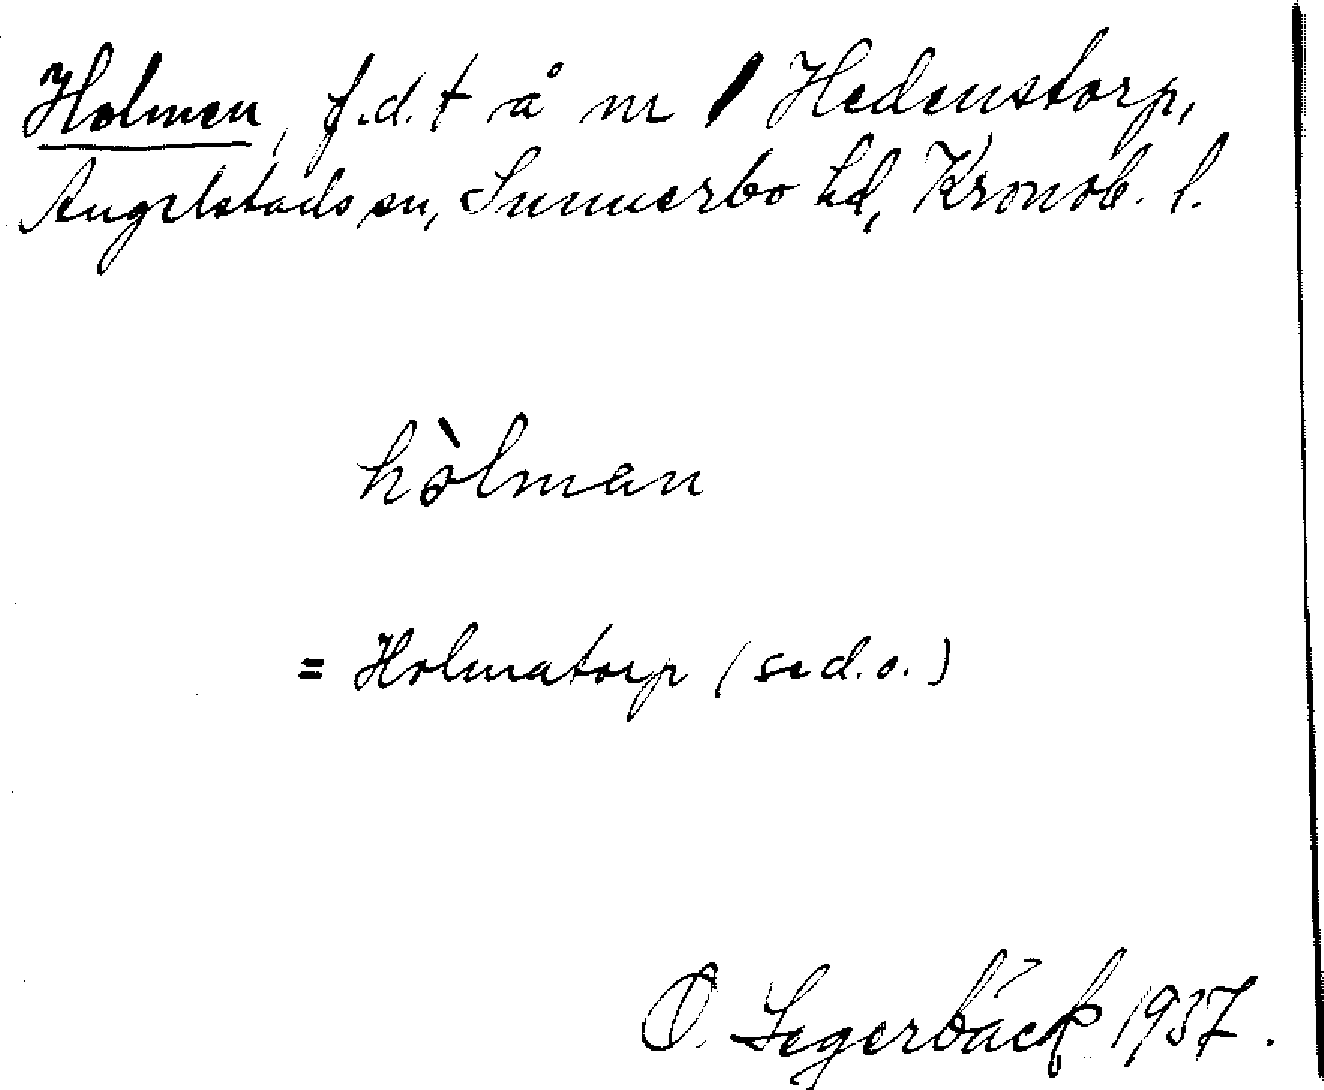 Holmen, f.d. t å nr 1 Hedenstorp,
Angelstads sn, Sunnerbo hd, Kronob. l.
hòlman
= Holmatorp (se d.o.)
O. Segerbäck 1937.